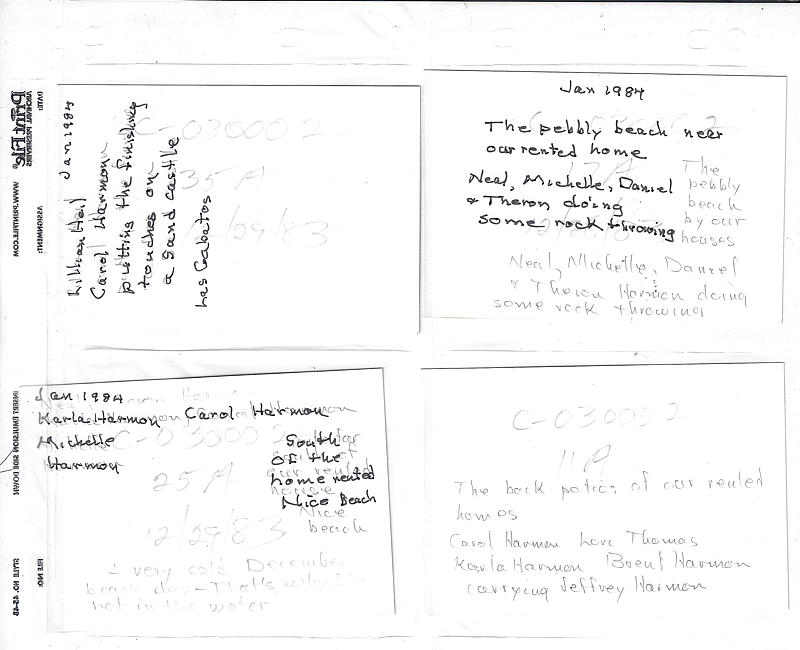 Lillian Hail Jan 1984
Carol Harmon
putting the finishing
touches on
a sand castle
Las Gabatos
C-03000 2
35 A
12/29/83
Jan 1984
C-03000 2
The pebbly beach near
our rented home
17 A
Neal, Michelle, Daniel
& Theron doing
some rock throwing
The
pebbly
beach
by our
houses
Neal, Michelle, Daniel
& Theron Harmon doing
some rock throwing
Jan 1984
Karla Harmon Carol Harmon
Michelle
Harmon
South
of the
home rented
Nice Beach
C-03000 2
25 A
our rented
house
Nice
beach
12/29/83
A very cold December
beach day - That's why I'm
not in the water
C-03000 2
11 A
The back patios of our rented
homes
Carol Harmon Lora Thomas
Karla Harmon Brent Harmon
carrying Jeffrey Harmon
DATE:
Print File®
ARCHIVAL PRESERVERS
WWW.PRINTFILE.COM
ASSIGNMENT:
INSERT EMULSION SIDE DOWN
FILE NO:
STYLE NO. 45-4B